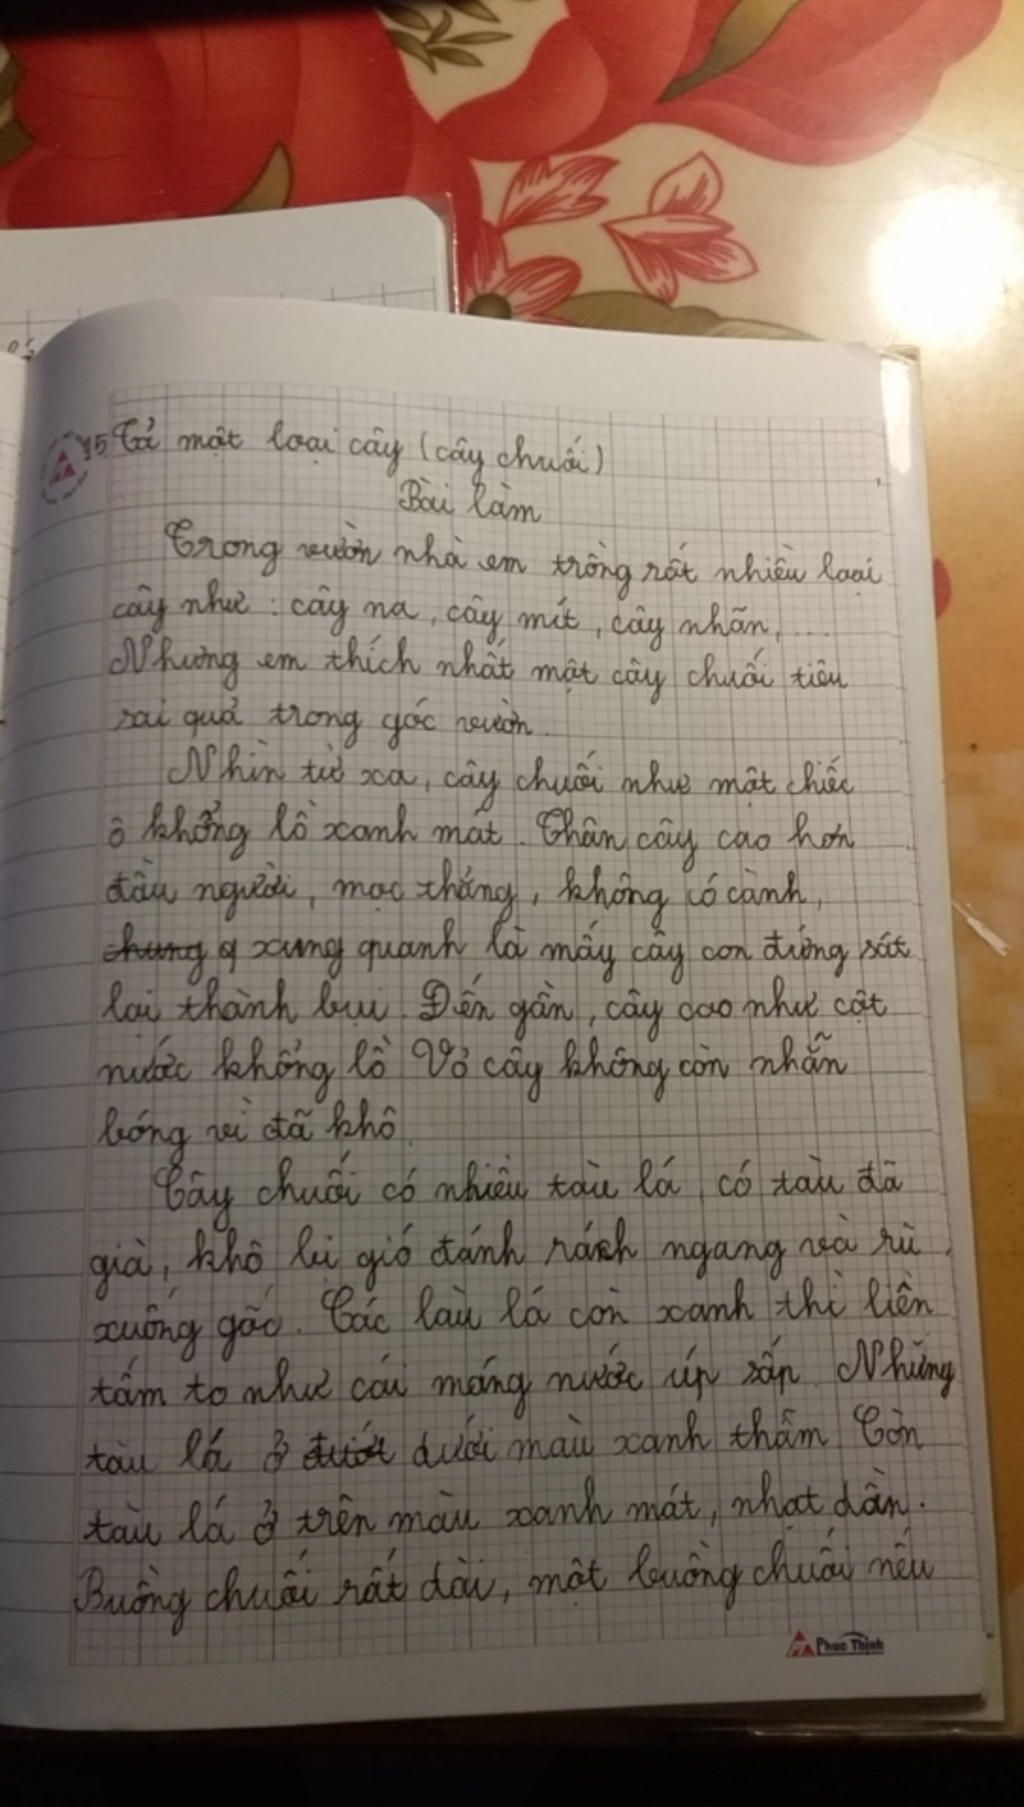 15 Tả một loại cây (cây chuối)
Bài làm
Trong vườn nhà em trồng rất nhiều loại
cây như : cây na, cây mít, cây nhãn, ...
Nhưng em thích nhất một cây chuối tiêu
sai quả trong góc vườn.
Nhìn từ xa, cây chuối như một chiếc
ô khổng lồ xanh mát. Thân cây cao hơn
đầu người, mọc thẳng, không có cành,
chung q xung quanh là mấy cây con đứng sát
lại thành bụi. Đến gần, cây cao như cột
nước khổng lồ Vỏ cây không còn nhẵn
bóng vì đã khô.
Cây chuối có nhiều tàu lá, có tàu đã
già, khô bị gió đánh rách ngang và rủ
xuống gốc. Các làu lá còn xanh thì liền
tấm to như cái máng nước úp sấp. Những
tàu lá ở dưới màu xanh thẫm Còn
tàu lá ở trên màu xanh mát, nhạt dần.
Buồng chuối rất dài, một buồng chuối nếu
Phuc Thinh